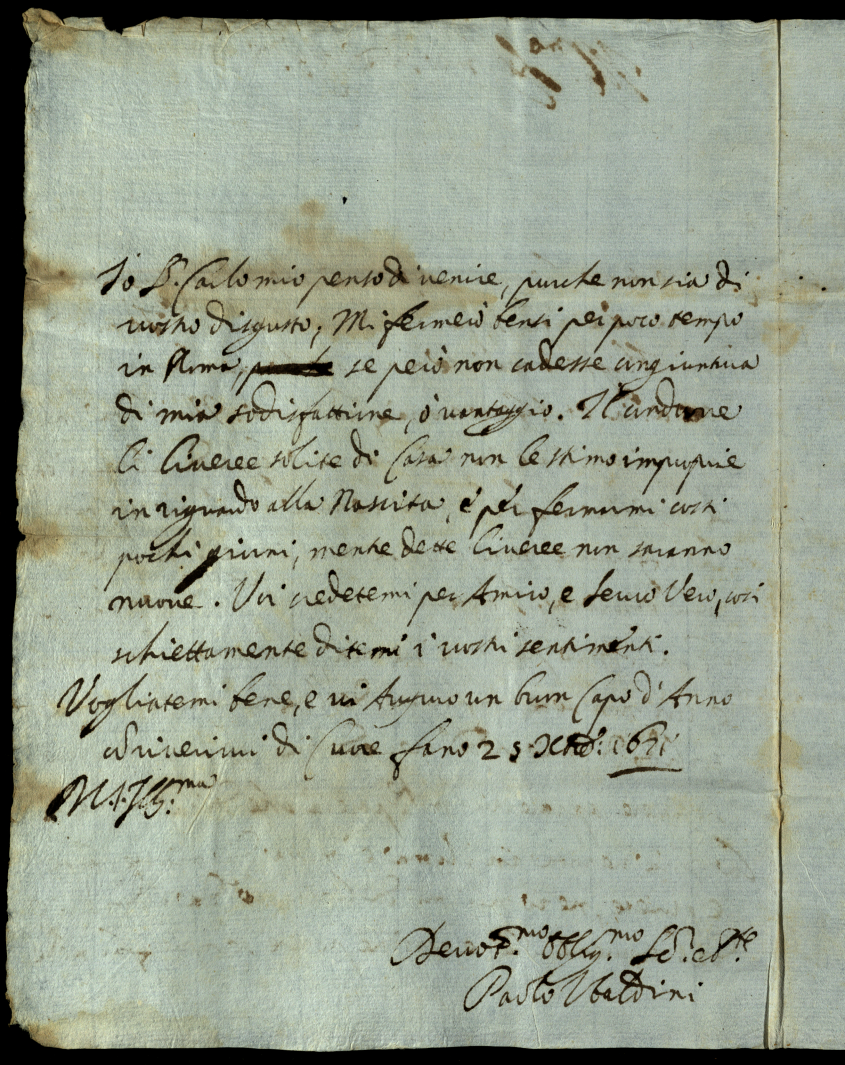 Io S.r Carlo mio penso di venire, purche non sia di
vostro disgusto; Mi fermerò bensi per poco tempo
in Roma, se però non cadesse congiuntura
di mia sodisfattione, ò vantaggio. Il condurre
li liveree solite di Casa non le stimo improprie
in riguardo alla Nascita, e per fermarmi costi
pochi giorni, mentre dette liveree non saranno
nuove. Voi credetemi per Amico, e Servo Vero, così
schiettamente ditemi i vostri sentimenti.
Vogliatemi bene, e vi Auguro un buon Capo d'Anno
riverirvi di Cuore fano 25 Xbre: 1671
Devot.mo Obblig.mo
Paolo Ubaldini